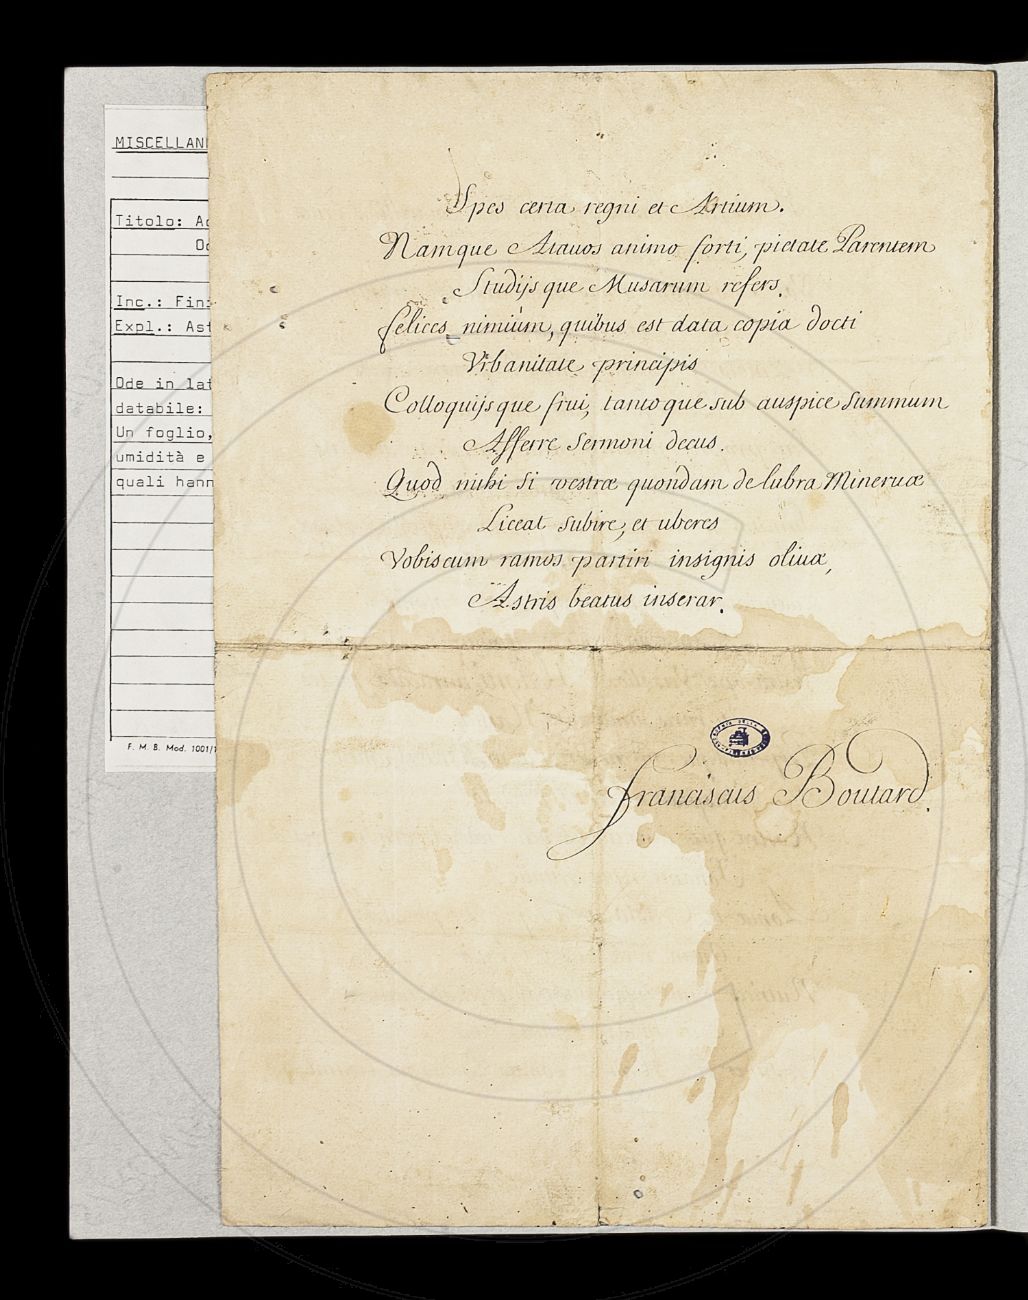 MISCELLAN
Titolo: Ad
Od
Inc.: Fin
Expl.: Ast
Ode in lat
databile:
Un foglio,
umidità e
quali hann
F. M. B. Mod. 1001/1
Spes certa regni et Artium.
Namque Atauos animo forti, pietate Parentem
Studijsque Musarum refers.
felices nimiùm, quibus est data copia docti
Vrbanitate principis
Colloquijsque frui, tantoque sub auspice summum
Afferre Sermoni decus.
Quod mihi si vestræ quondam delubra Mineruæ
Liceat subire, et uberes
Vobiscum ramos partiri insignis oliuæ,
Astris beatus inserar.
franciscus Boutard.